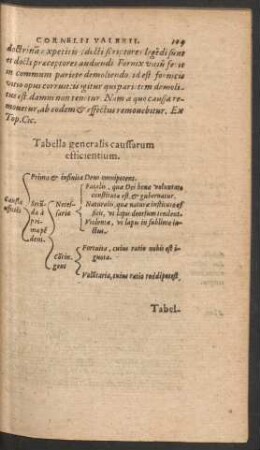 CORNELII VALERII. 104
doctrinæ expetitis idcilli scriptores legēdi sunt
et docti præceptores audiendi. Fornix vitiū fecit
in communi pariete demoliendo, id est fornicis
vitio opus corruit: si igitur quis parietem demoli-
tus est, damni non tenetur. Nam a quo caussa re-
mouetur, ab eodem & effectus remouebitur. Ex
Top. Cic.
Tabella generalis caussarum
efficientium.
Prima & infinita Deus omnipotens.
Fatalis, quæ Dei bona voluntate
constituta est, & gubernatur.
Naturalis, quæ naturæ instituta ef-
ficit, vt lapis deorsum tendens.
Violenta, vt lapis in sublime ia-
ctus.
Caussa
efficiēs
Secūda
à
prima
pē
dens.
Neces-
saria
Cōtin-
gens
Fortuita, cuius ratio nobis est i-
gnota.
Voluntaria, cuius ratio reddi potest,
Tabel-